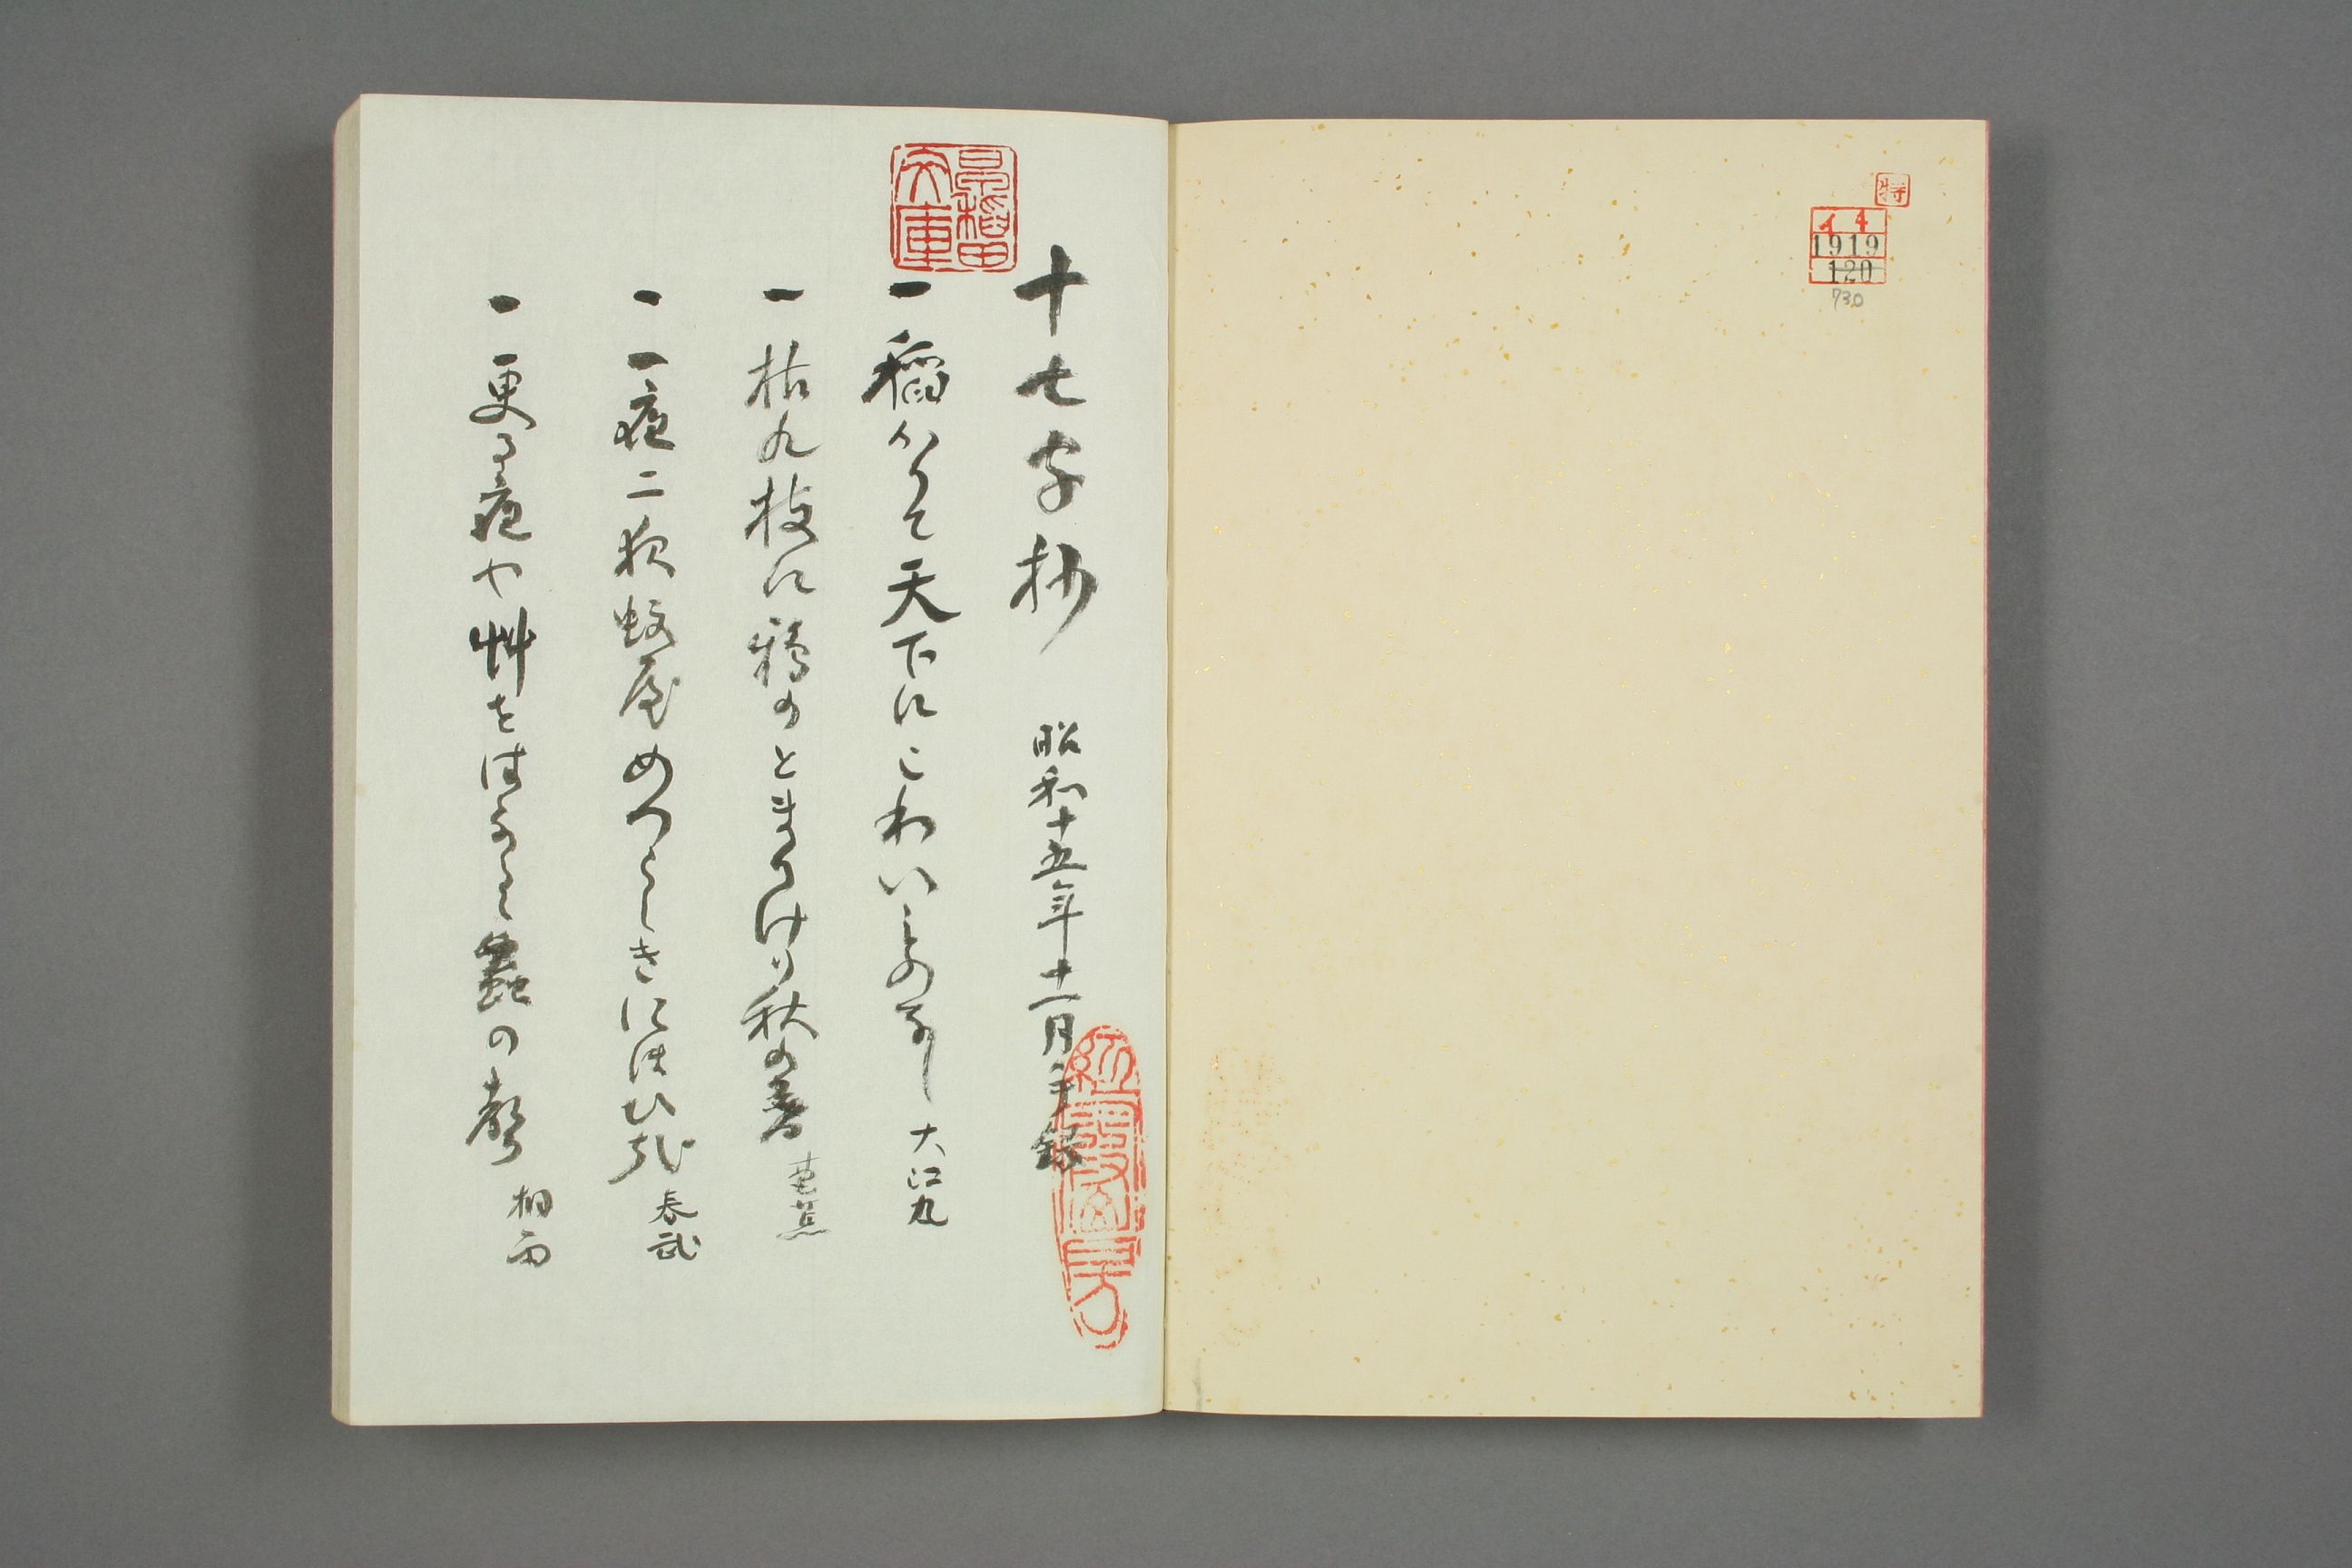 特
イ4
1919
120
730
早稲田文庫
十七字抄 昭和十五年十一月手録
一 稲かりて天下にこわいものなし 大江丸
一 枯れ枝に鴉のとまりけり秋の暮 芭蕉
一 一夜二夜蚊屋めつらしきにほひ哉 春武
一 更る夜や艸をはなるゝ蟲の聲 桐雨